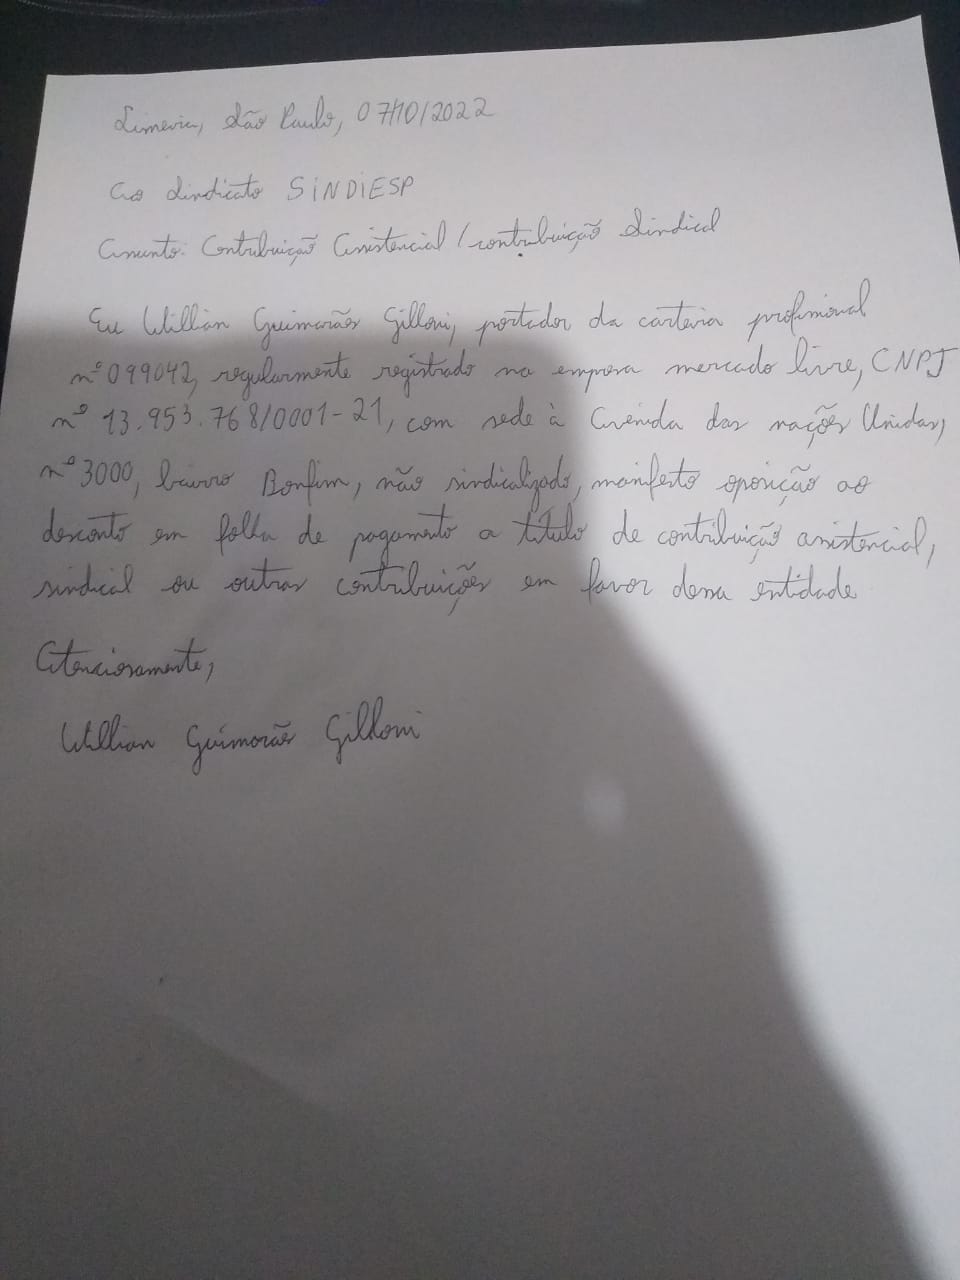 Limeira, São Paulo, 07/10/2022
Ao Sindicato SINDIESP
Assunto: Contribuição Assistencial / contribuição Sindical
Eu Willian Guimarães Gilloni, portador da carteira profissional
nº 099042, regularmente registrado na empresa mercado livre, CNPJ
nº 13.953.768/0001-21, com sede à Avenida das nações Unidas,
nº 3000, bairro Bonfim, não sindicalizado, manifesto oposição ao
desconto em folha de pagamento a título de contribuição assistencial,
sindical ou outras contribuições em favor dessa entidade
Atenciosamente,
Willian Guimarães Gilloni